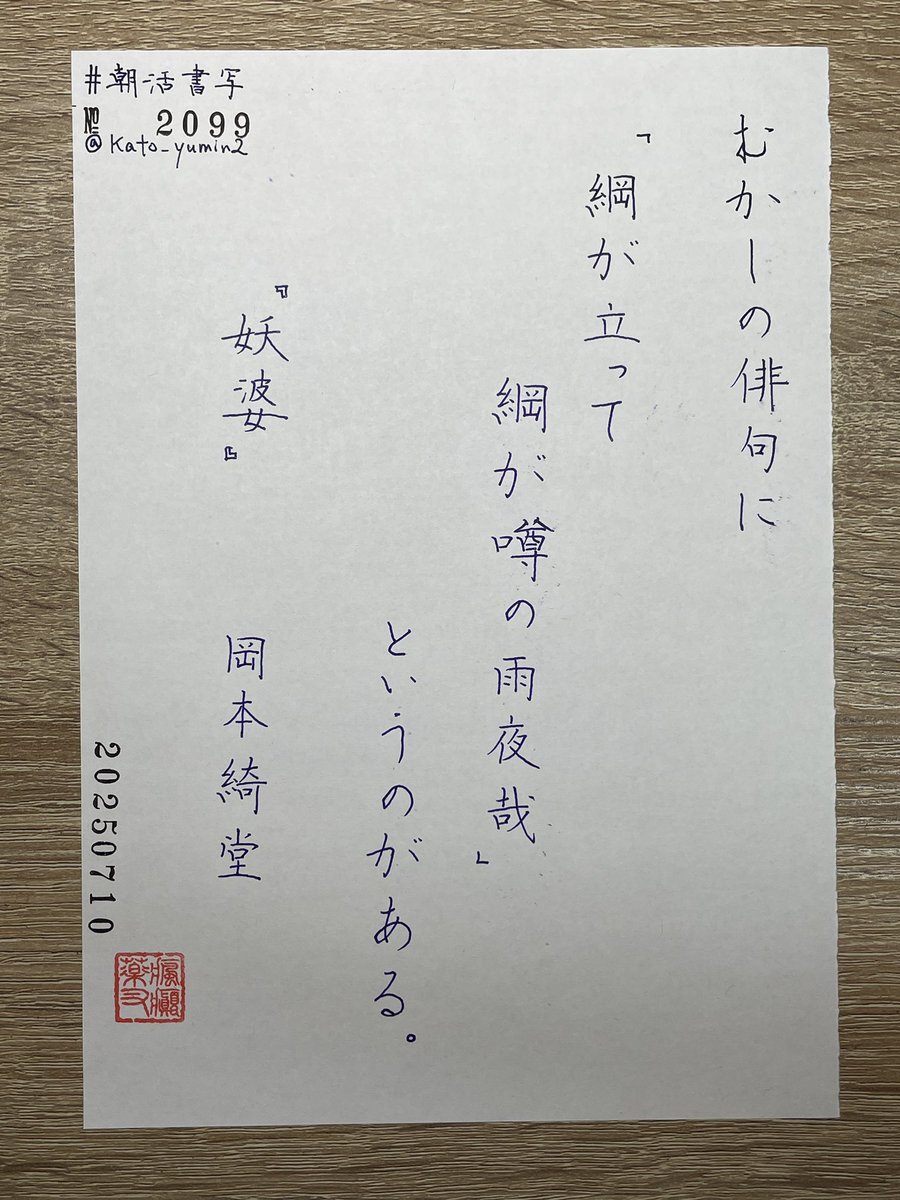 #朝活書写
№ 2099
@kato_yumin2
むかしの俳句に
「綱が立って
綱が噂の雨夜哉」
というのがある。
『妖婆』
岡本綺堂
20250710